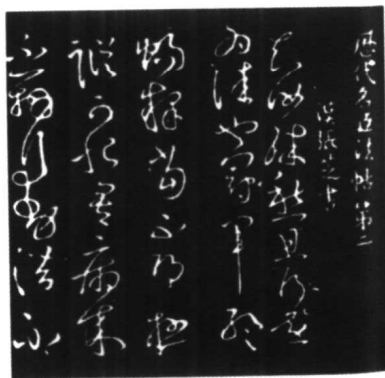 歷代名臣法帖第二
漢張芝書
知汝殊愁且得還
為佳也冠軍暫
暢釋當不得極
蹤可恨吾病來
不辦行動潛不